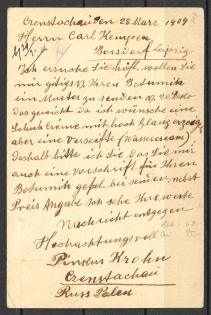 Czenstachau den 28 März 1909
Herrn Carl Kempen
Borsdorf Leipzig
Ich ersuche Sie höfl. wollen Sie
mir gütigst v. Ihren
ein Muster zu senden
Das gereicht da ich wünsche eine
Schuh Creme mit hoch glanz
aber eine Verseifte (Wassercream)
Deshalb bitte ich Sie, bei Sie mir
auch eine Vorschrift für Ihren
gefl. bei senden, nebst
Preis Angabe Ich sehe Ihre werte
Nachricht entgegen
Hochachtungsvoll
Pinkus Krohn
Czenstachau
Russ Polen